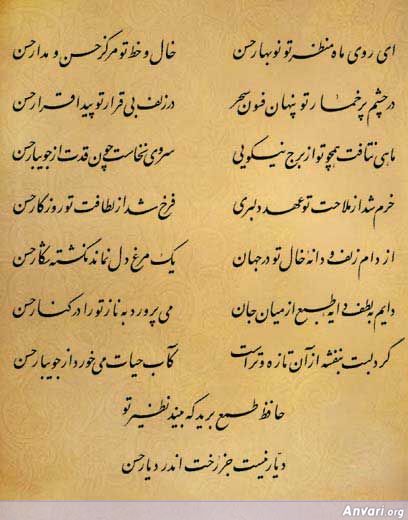 ای روی ماه منظر تو نوبهار حسن خال و خط تو مرکز حسن و مدار حسن
در چشم پر خمار تو پنهان فسون سحر در زلف بی قرار تو پیدا قرار حسن
ماهی نتافت همچو تو از برج نیکویی سروی نخاست چون قدت از جویبار حسن
خرم شد از ملاحت تو عهد دلبری فرخ شد از لطافت تو روزگار حسن
از دام زلف و دانه خال تو در جهان یک مرغ دل نماند نگشته شکار حسن
دایم به لطف دایه طبع از میان جان می پرورد به ناز تو را در کنار حسن
گرد لبت بنفشه از آن تازه و تر است کآب حیات می خورد از جویبار حسن
حافظ طمع برید که بیند نظیر تو
دیار نیست جز رخت اندر دیار حسن
Anvari.org